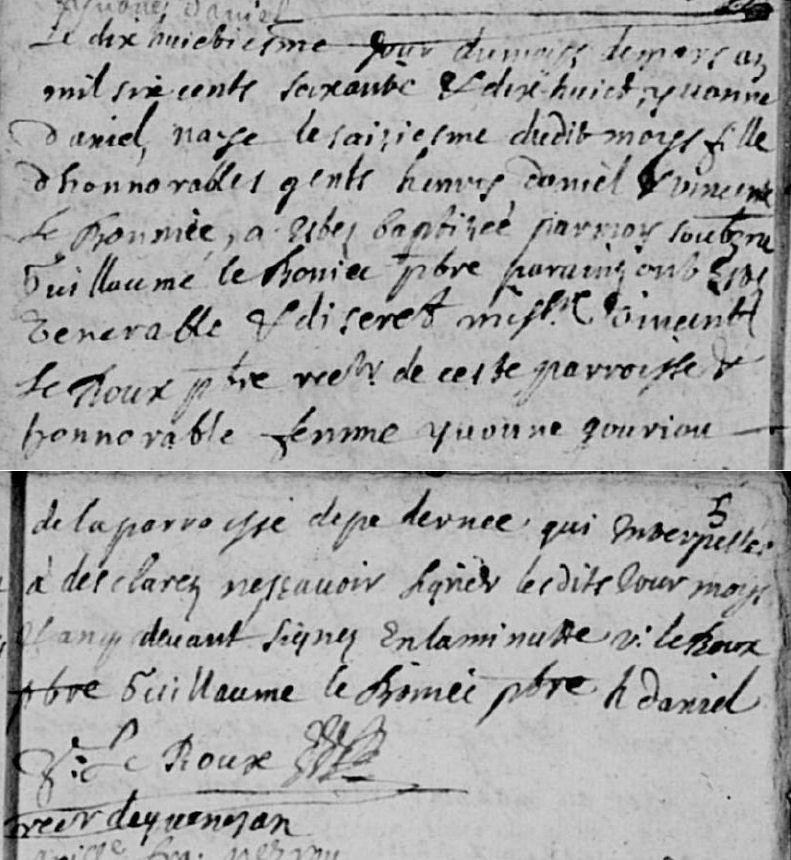 yvonne Daniel
Le dix huictiesme Jour du moys de mars an
mil six cents soixante & dix huict, yvonne
Daniel, naye le saiziesme dudit moys fille
d'honnorables gents henry daniel & vincente
le Rommée, a Estez baptizée par moy soubzne
Guillaume le Romiec pbre parains ont Estes
Venerable & discret missire Vincent
Le Roux ptre recr de ceste parroisse &
honnorable femme yvonne gouriou
5
de la parroisse de pedernec qui Interpellee
à desclarez ne scavoir signer lesdits Jour moys
& an que devant signez En la minutte v: le Roux
pbre Guillaume le Romiec pbre h daniel
V: Le Roux
recr de